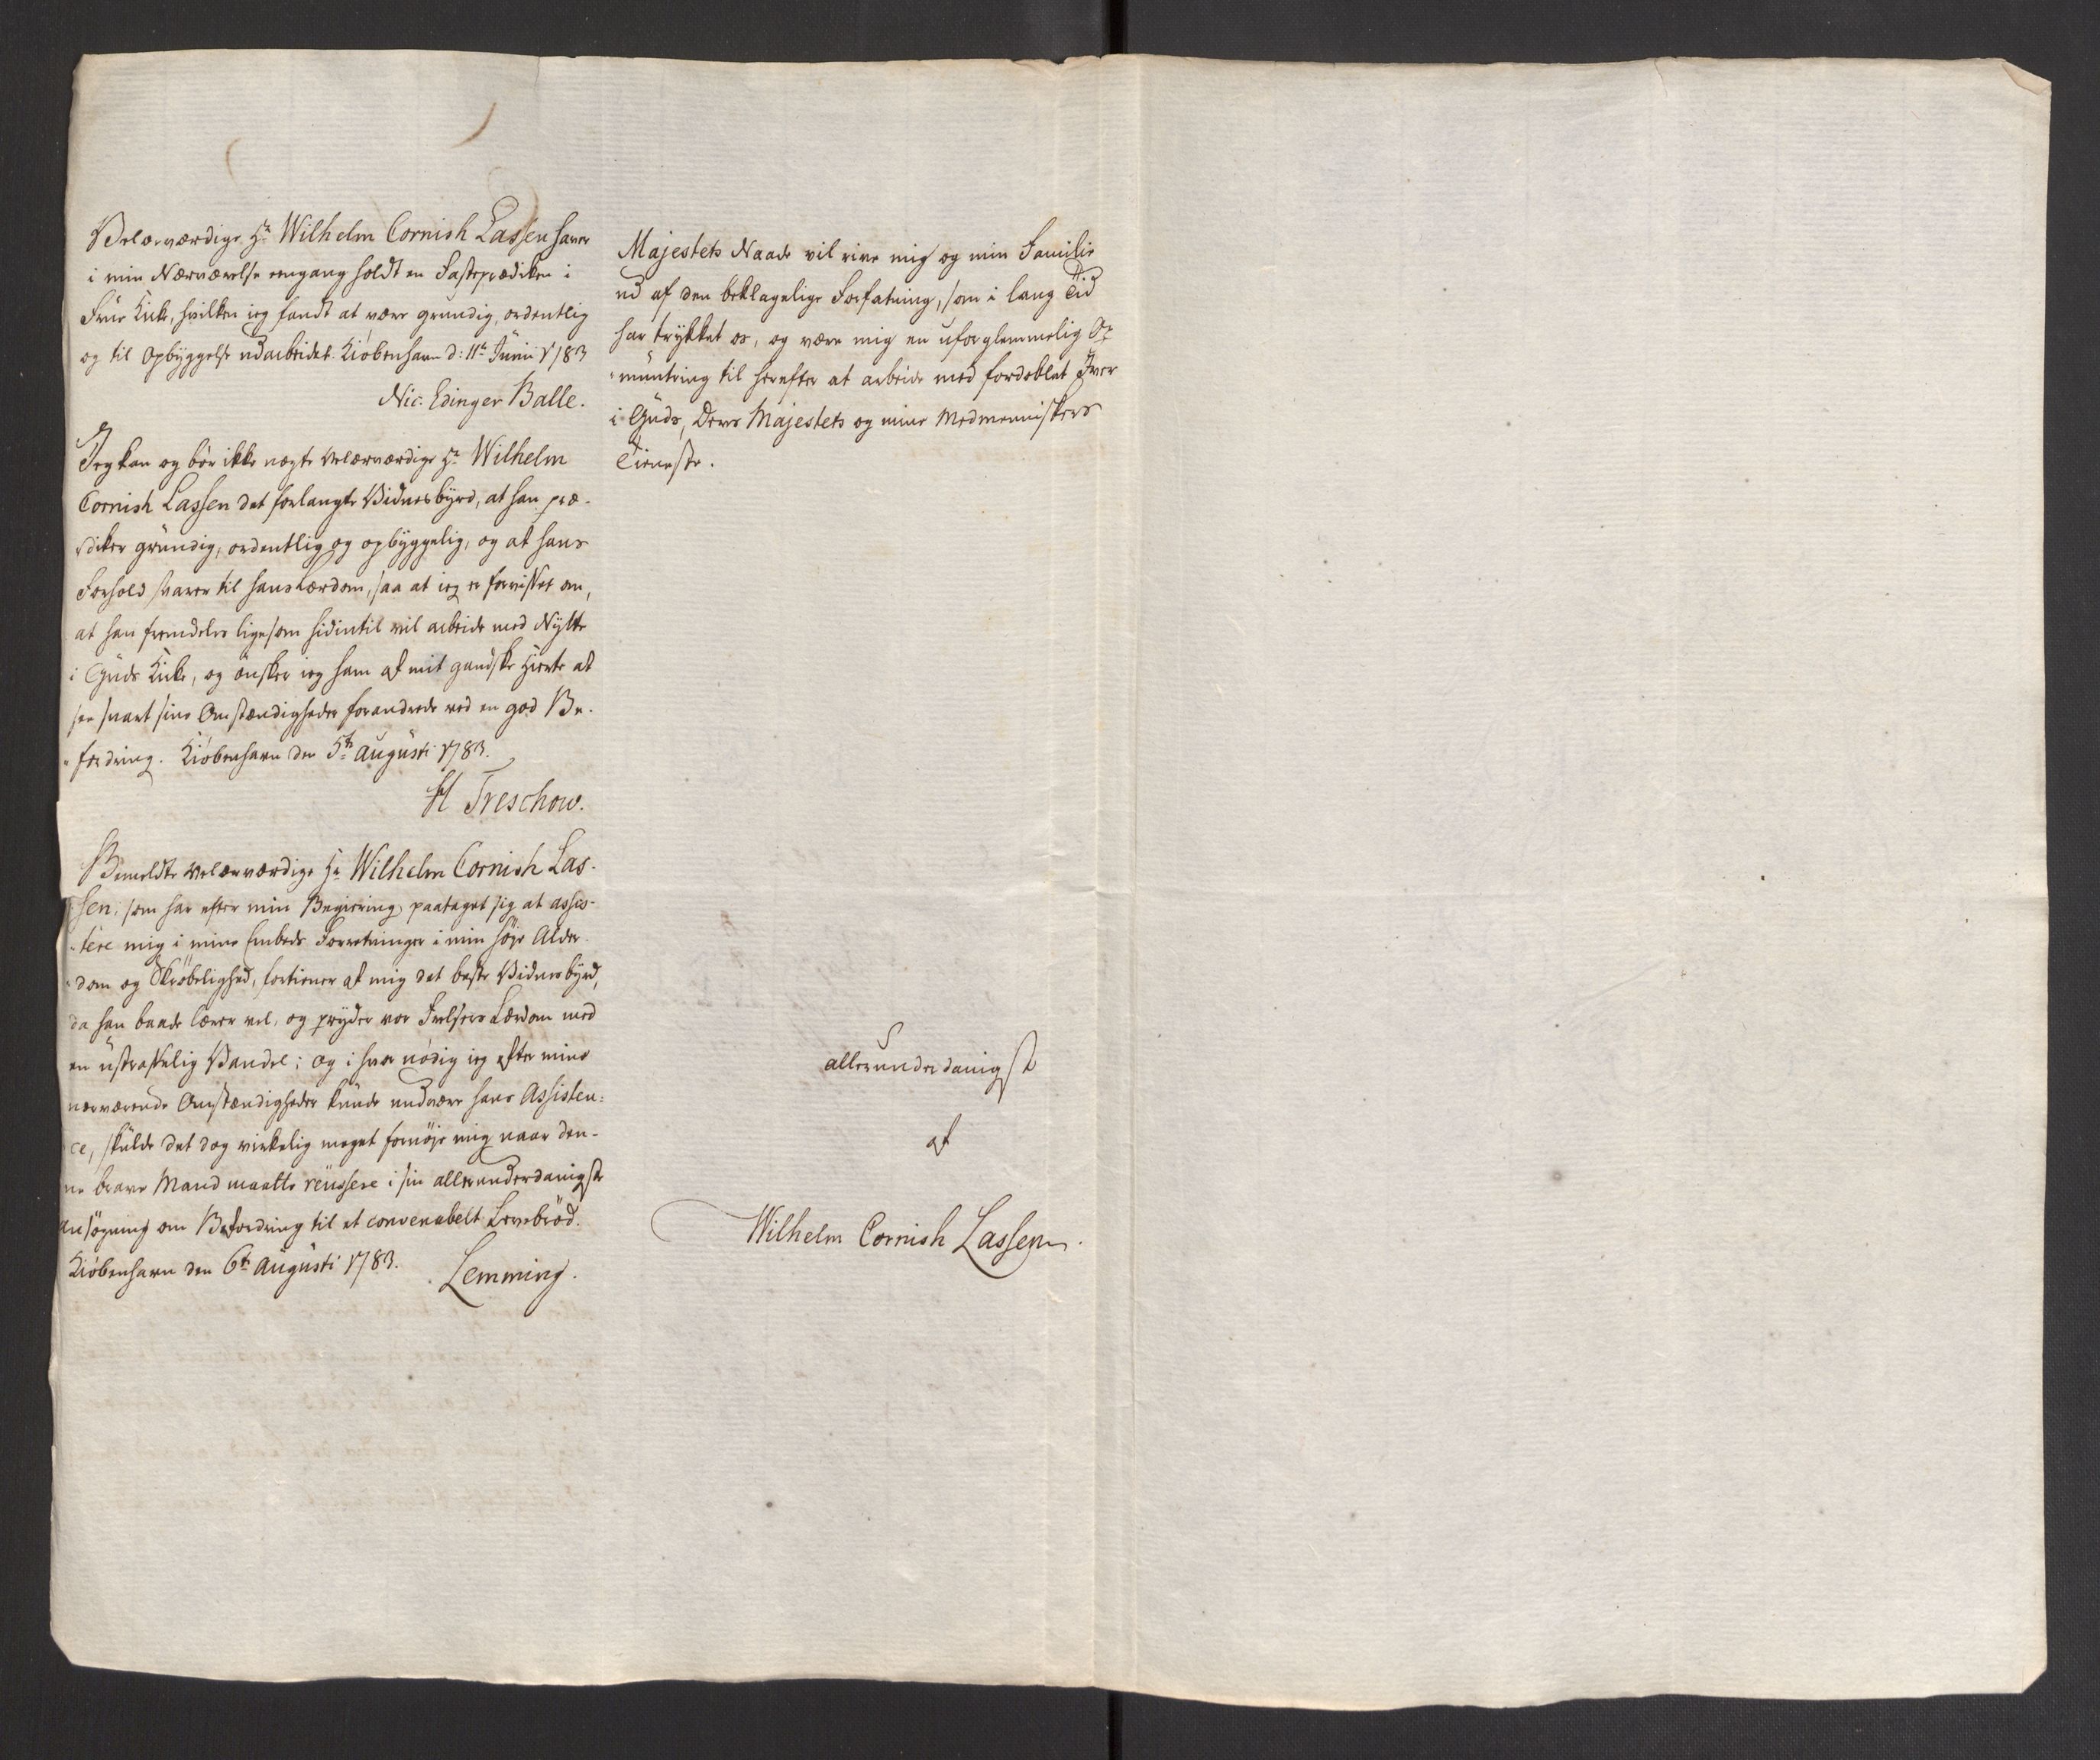 Velærværdige Hr Wilhelm Cornish Lassen haver
i min Nærværelse eengang holdt en Fasteprædiken i
Frue Kirke, hvilken ieg fandt at være grundig, ordentlig
og til Opbyggelse udarbeidet. Kiøbenhavn d: 11te Junii 1783
Nic. Edinger Balle.
Jeg kan og bør ikke nægte Velærværdige Hr Wilhelm
Cornish Lassen det forlangte Vidnesbyrd, at han præ-
-diker grundig, ordentlig og opbyggelig, og at hans
Forhold svarer til hans Lærdom, saa at ieg er forvisset om,
at han fremdeles ligesom hidintil vil arbeide med Nytte
i Guds Kirke, og ønsker ieg ham af mit gandske Hierte at
see snart sine Omstændigheder forandrede ved en god Be-
-fordring. Kiøbenhavn den 5te Augusti 1783.
H Treschow.
Bemeldte Velærværdige Hr Wilhelm Cornish Las-
sen, som har efter min Begiering paataget sig at assis-
-tere mig i mine Embeds Forretninger i min høje Alder-
-dom og Skrøbelighed, fortiener af mig det beste Vidnesbyrd,
da han baade lærer vel, og pryder vor Frelseres Lærdom med
en ustraffelig Vandel; og i hvor nødig ieg efter mine
nærværende Omstændigheder kunde undvære hans Assisten-
ce, skulde det dog virkelig meget fornøje mig naar den-
ne brave Mand maatte reussere i sin allerunderdanigste
Ansøgning om Befordring til et convenabelt Levebrød.
Kiøbenhavn den 6te Augusti 1783.
Lemming.
Majestets Naade vil rive mig og min Familie
ud af den beklagelige Forfatning, som i lang Tid
har trykket os, og være mig en uforglemmelig Op
-muntring til herefter at arbeide med fordoblet Iver
i Guds, Deres Majestets og mine Medmenniskers
Tieneste.
allerunderdanigst
af
Wilhelm Cornish Lassen.